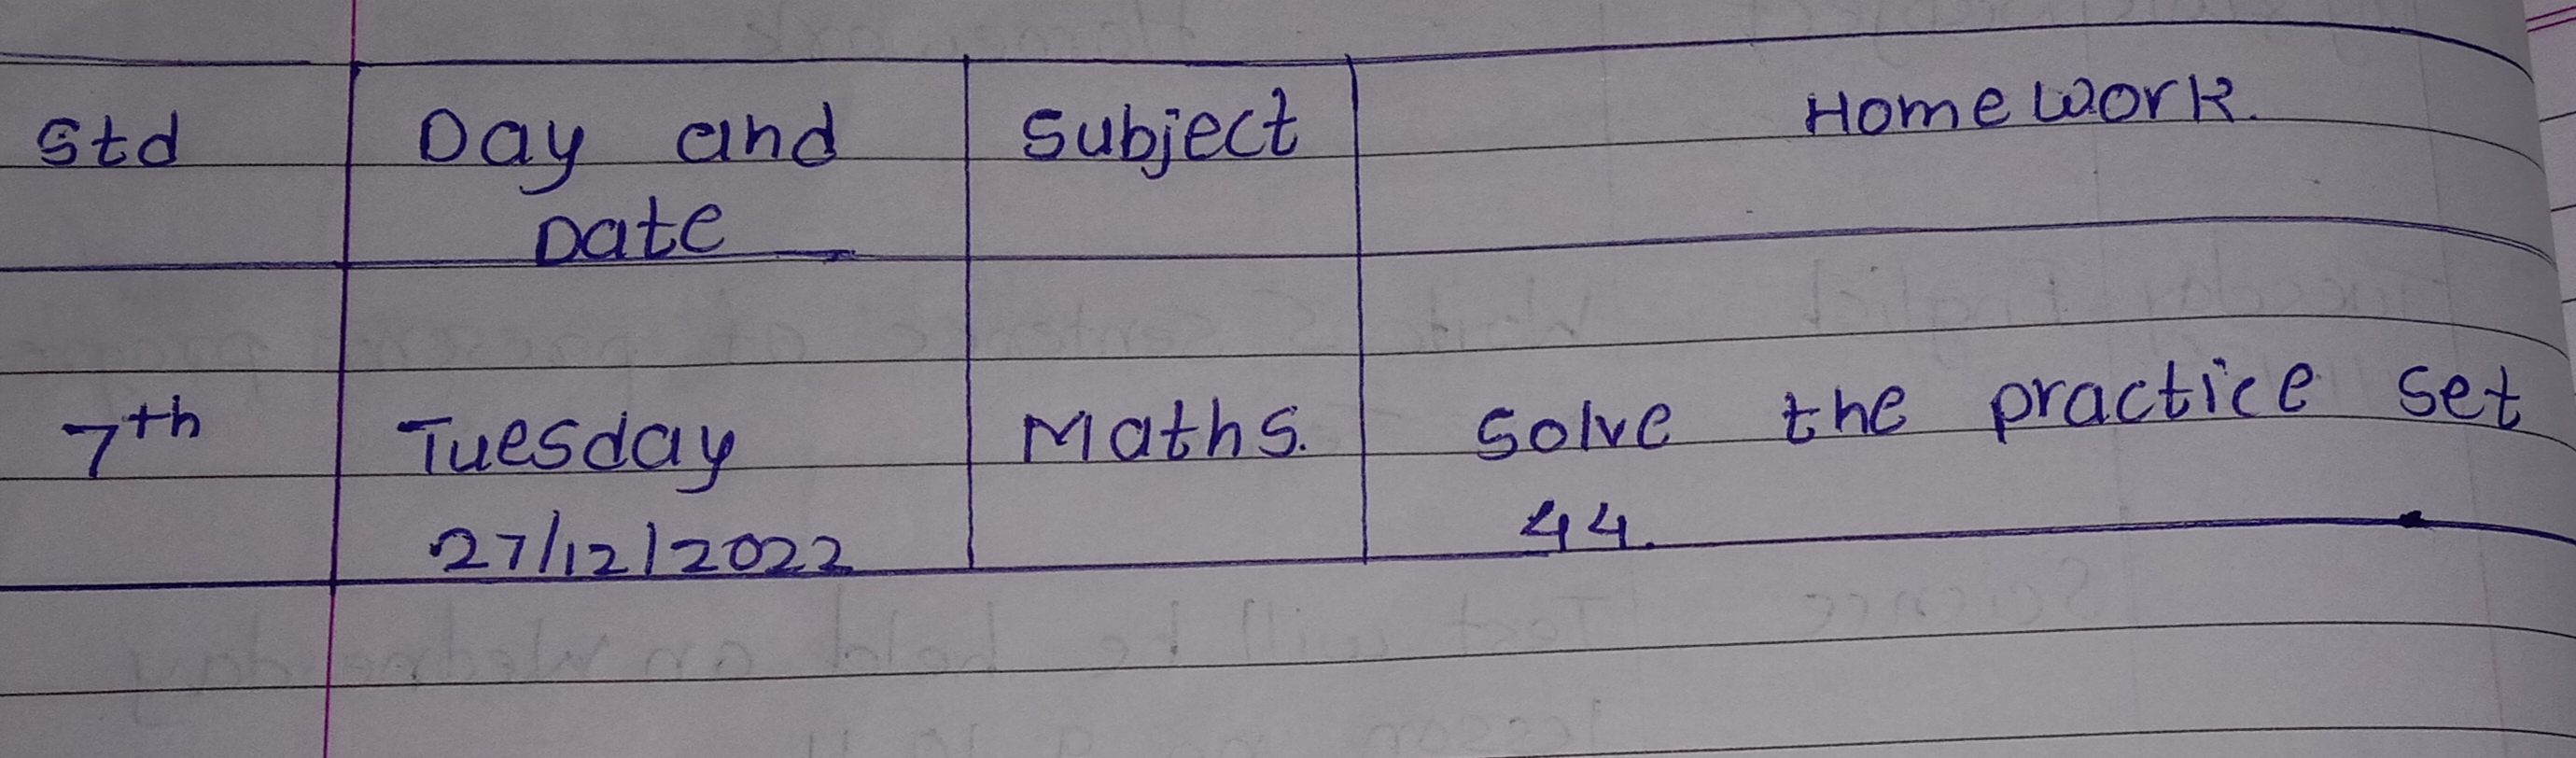 Std Day and Subject Home work.
Date
7th Tuesday Maths. Solve the practice set
27/12/2022 44.